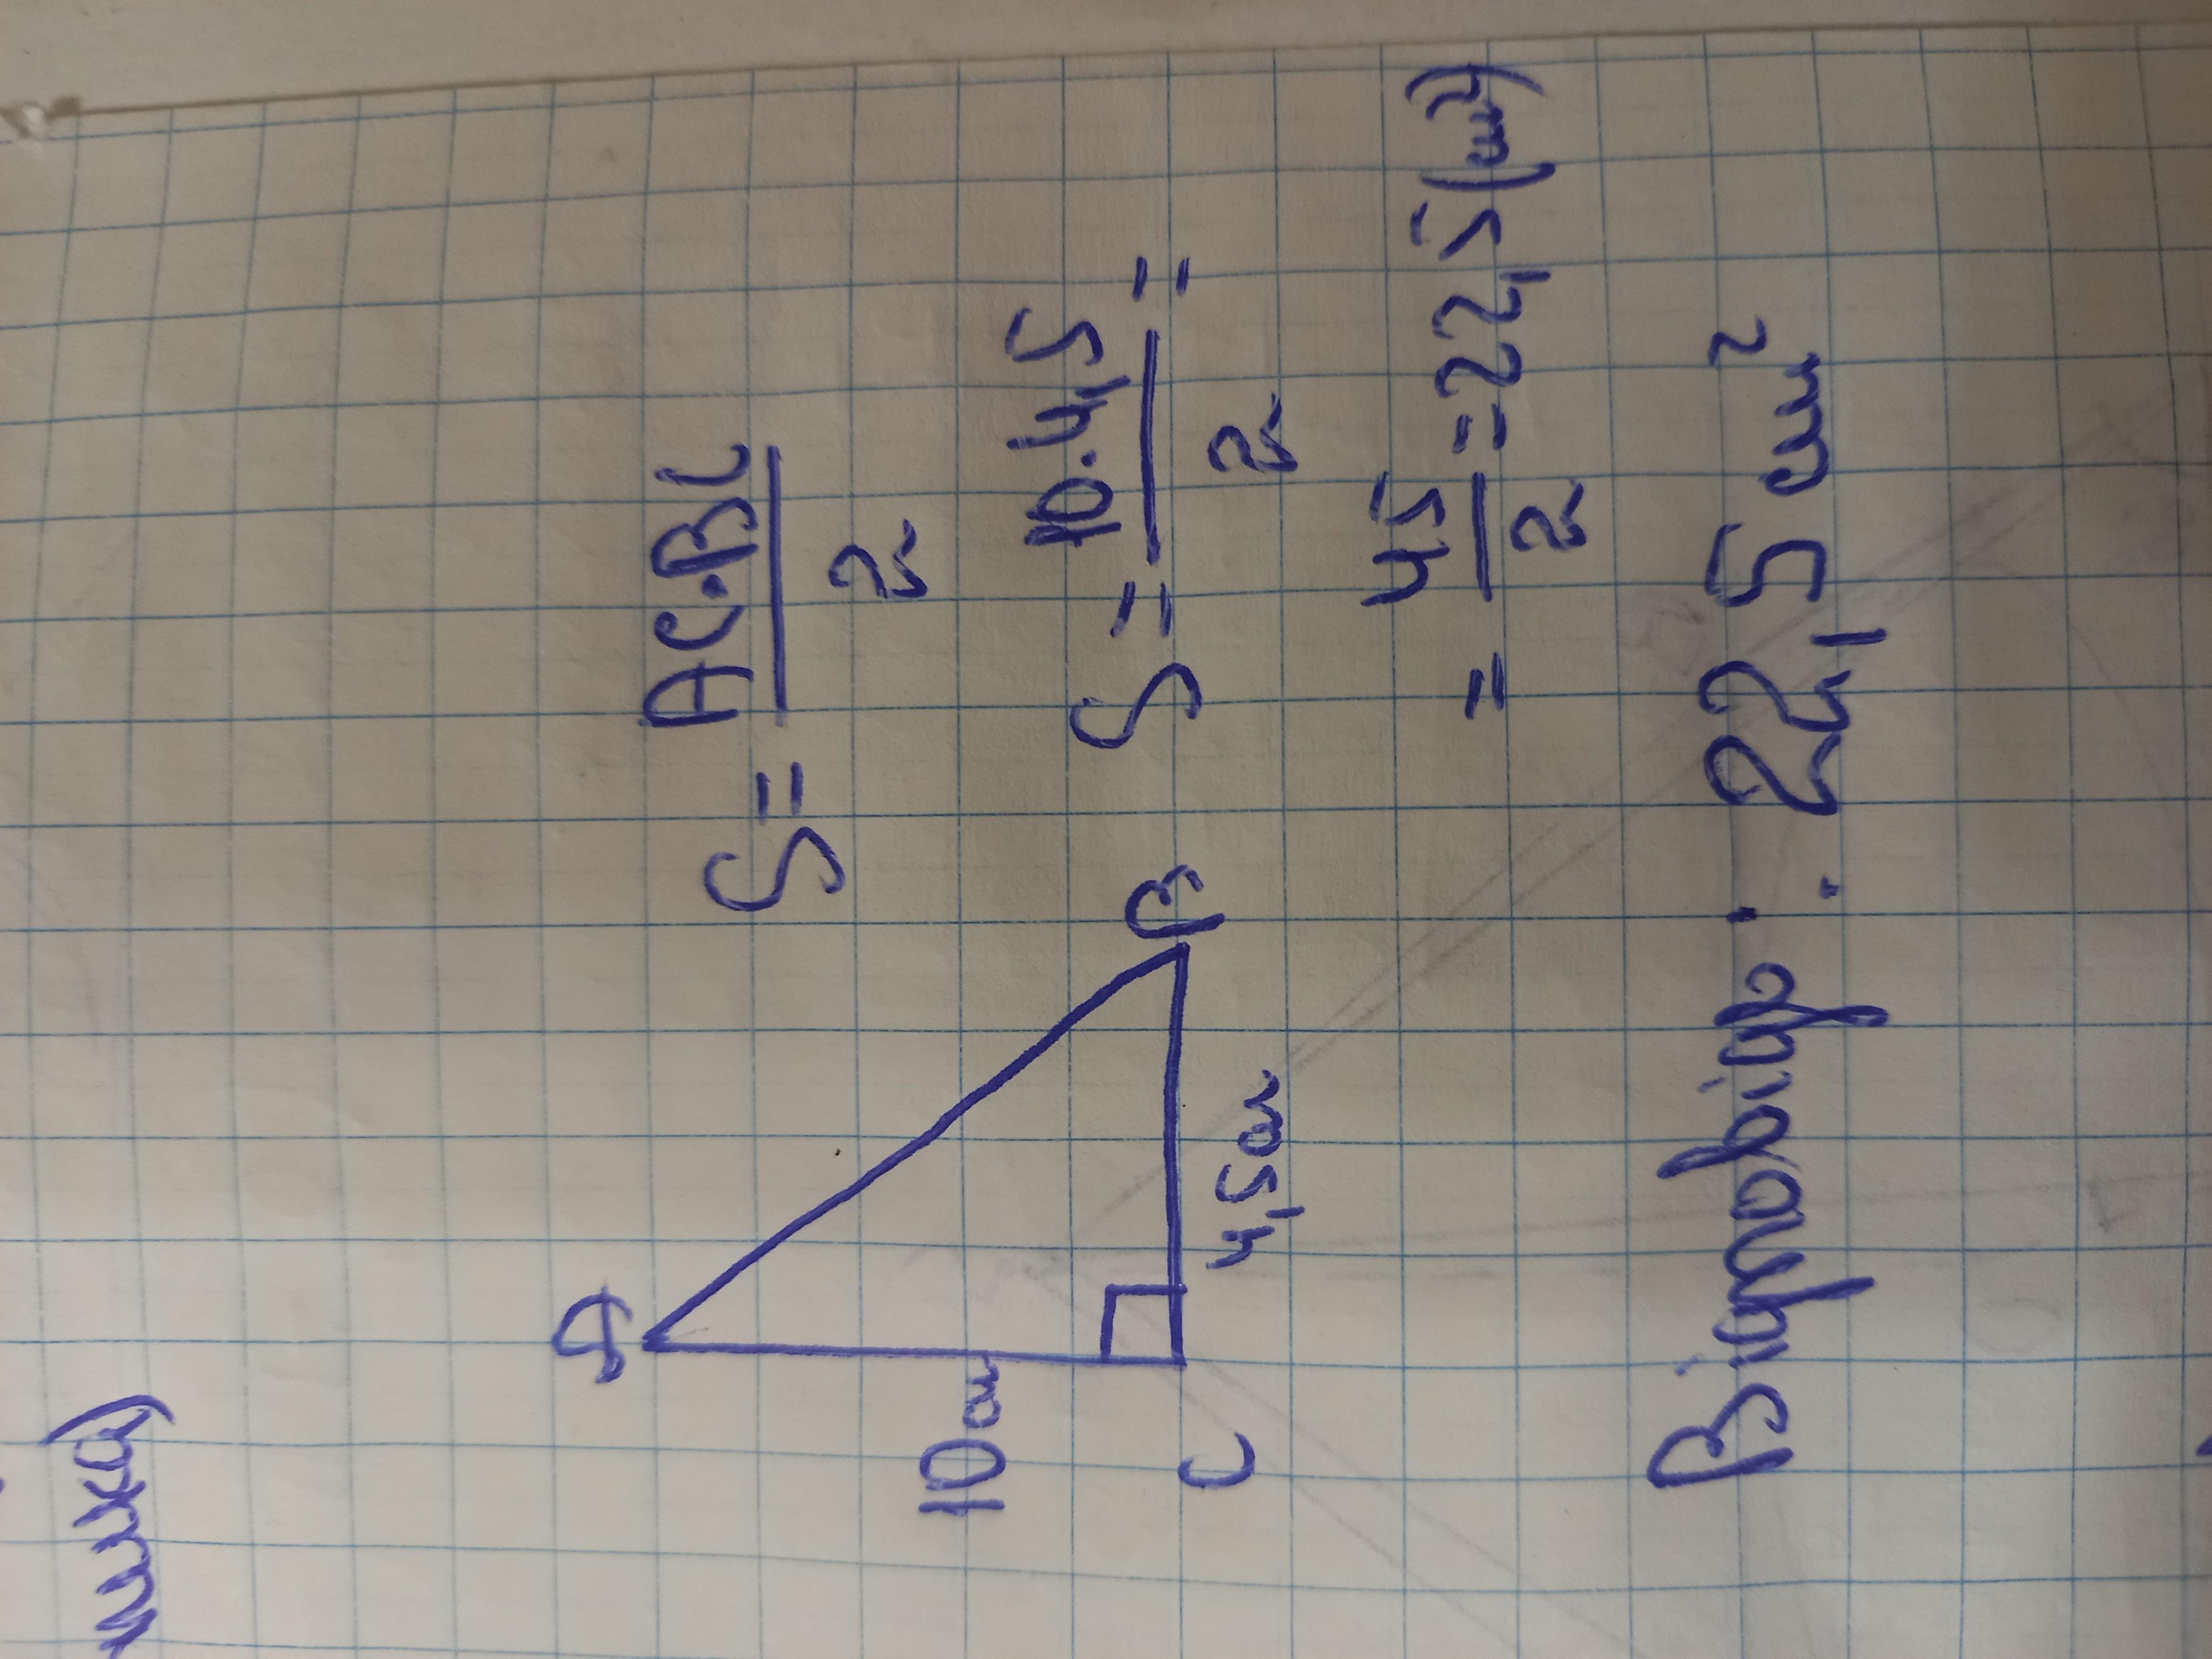 A
10 см
C
4,5 см
B
S = AC·BC / 2
S = 10·4,5 / 2 =
= 45 / 2 = 22,5 (см²)
Відповідь: 22,5 см²